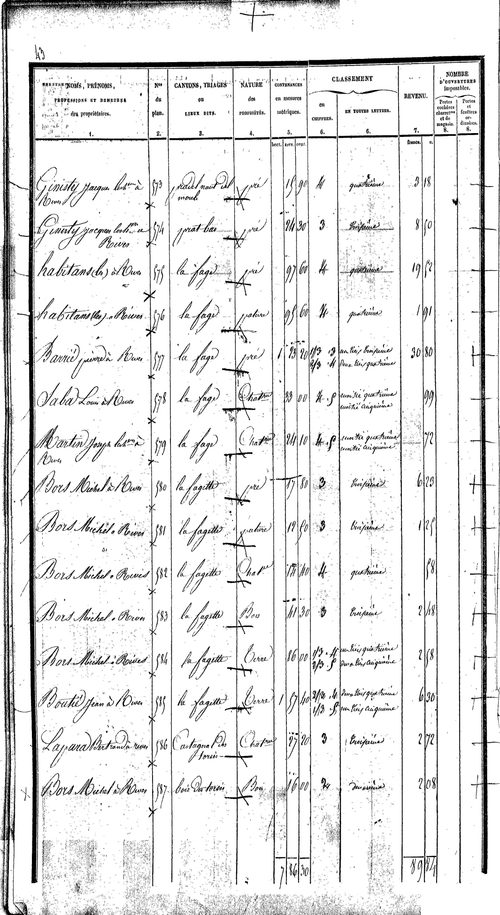 43
NOMS, PRÉNOMS, PROFESSIONS ET DEMEURE des propriétaires. 1.
Nos du plan. 2.
CANTONS, TRIAGES ou LIEUX DITS. 3.
NATURE des PROPRIÉTÉS. 4.
CONTENANCES en mesures métriques. 5. hect. ares. cent.
CLASSEMENT
en CHIFFRES. 6.
EN TOUTES LETTRES. 6.
REVENU. 7. francs. c.
NOMBRE D'OUVERTURES imposables.
8. 8.
Ginisty Jacques à Rives 573 pré 15 90 4 quatrième 3 18
Ginisty Jacques à Rives 574 prat bas pré 24 30 3 troisième 8 50
habitans (les) à Rives 575 la fage pré 97 60 4 quatrième 19 52
habitans (les) à Rives 576 la fage pature 95 60 4 quatrième 1 91
Barrié pierre à Rives 577 la fage pré 1 23 20 1/3 3 un tiers troisième 30 80
2/3 4 deux tiers quatrième
Sabal Louis à Rives 578 la fage Chat. 33 00 4 5 moitié quatrième 99
moitié cinquième
Martin Joseph à Rives 579 la fage Chat. 24 10 4 5 moitié quatrième 72
moitié cinquième
Bors Michel à Rives 580 la fagette pré 17 80 3 troisième 6 23
Bors Michel à Rives 581 la fagette pature 12 50 3 troisième 1 25
Bors Michel à Rives 582 la fagette Chat. 4 quatrième 58
Bors Michel à Rives 583 la fagette Bois 41 30 3 troisième 2 48
Bors Michel à Rives 584 la fagette Terre 86 00 1/3 4 un tiers quatrième 2 58
2/3 5 deux tiers cinquième
Boutié Jean à Rives 585 la fagette Terre 1 57 40 2/3 4 deux tiers quatrième 6 30
1/3 5 un tiers cinquième
Bertrand à rives 586 Castagnal des Chat. 27 20 3 troisième 2 72
Bors Michel à Rives 587 Bois 16 00 2 deuxième 2 08
7 86 30 89 84